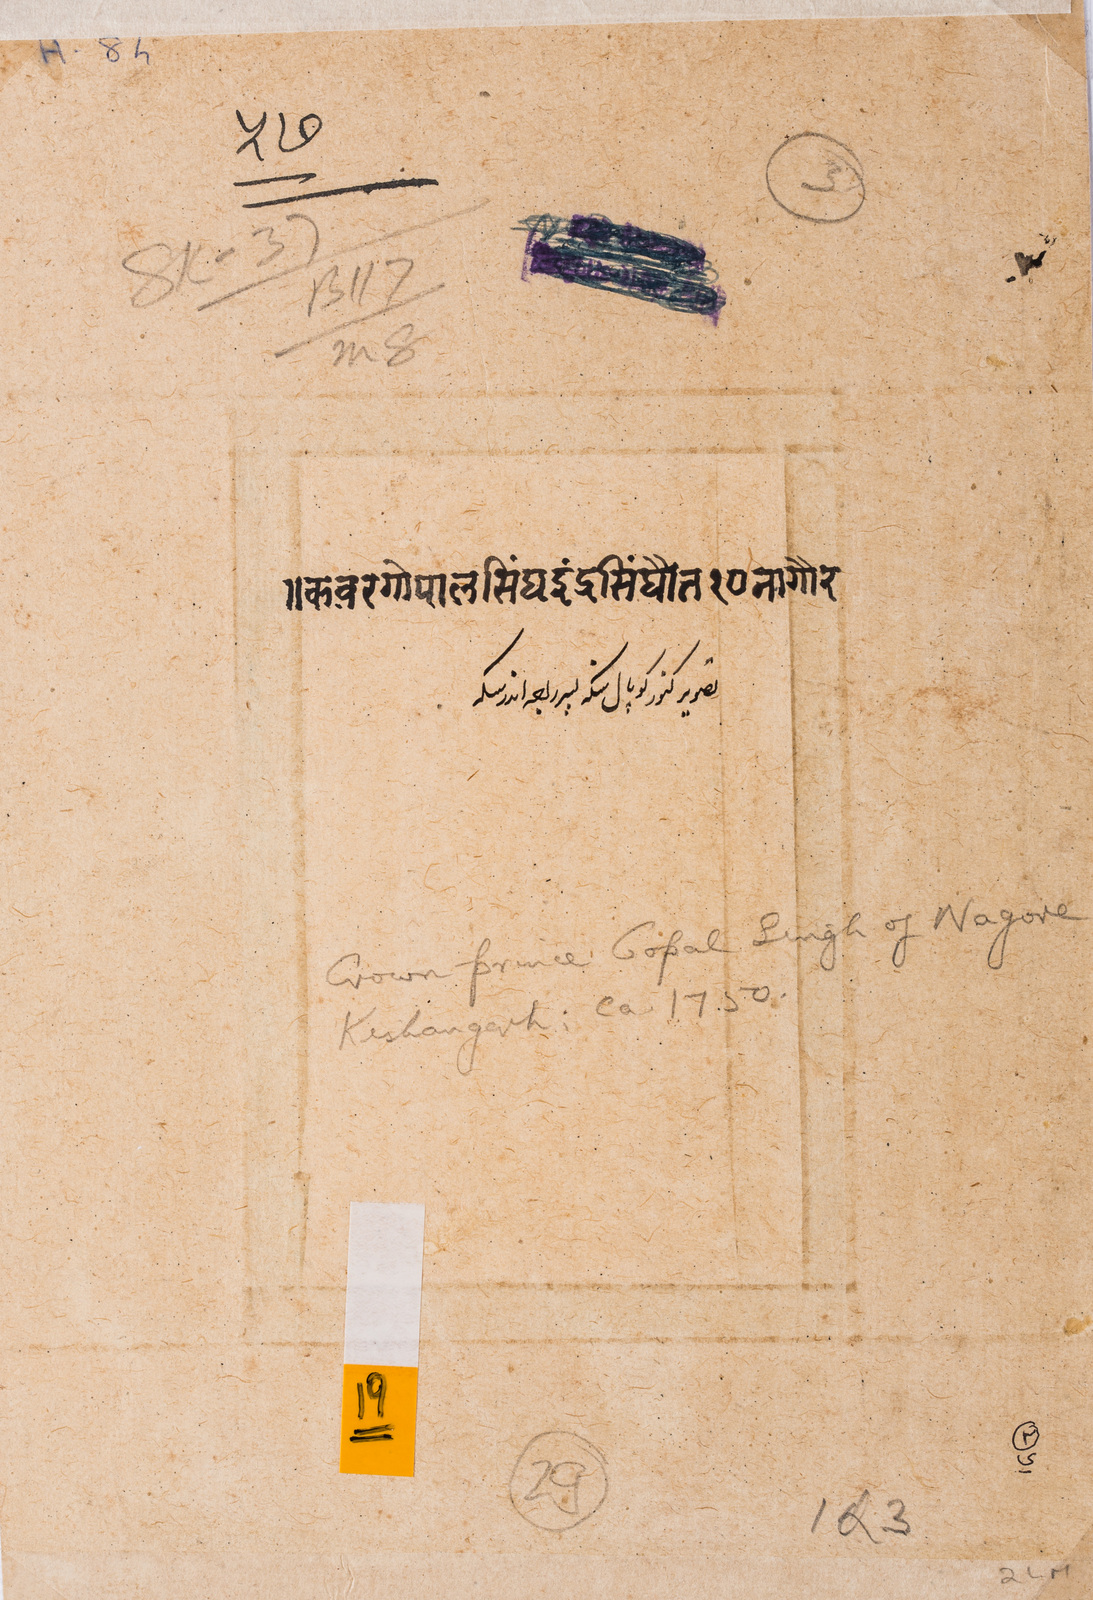 H. 84
५७
3
SK-37
B117
m 8
॥कवरगोपालसिंघइंद्रसिंघौत१०नागौर
تصویر کنور کوپال سنکه پسر راجه اندر سنکه
Crown prince Gopal Singh of Nagore
Kishangarh; ca 1750.
19
29
1&3